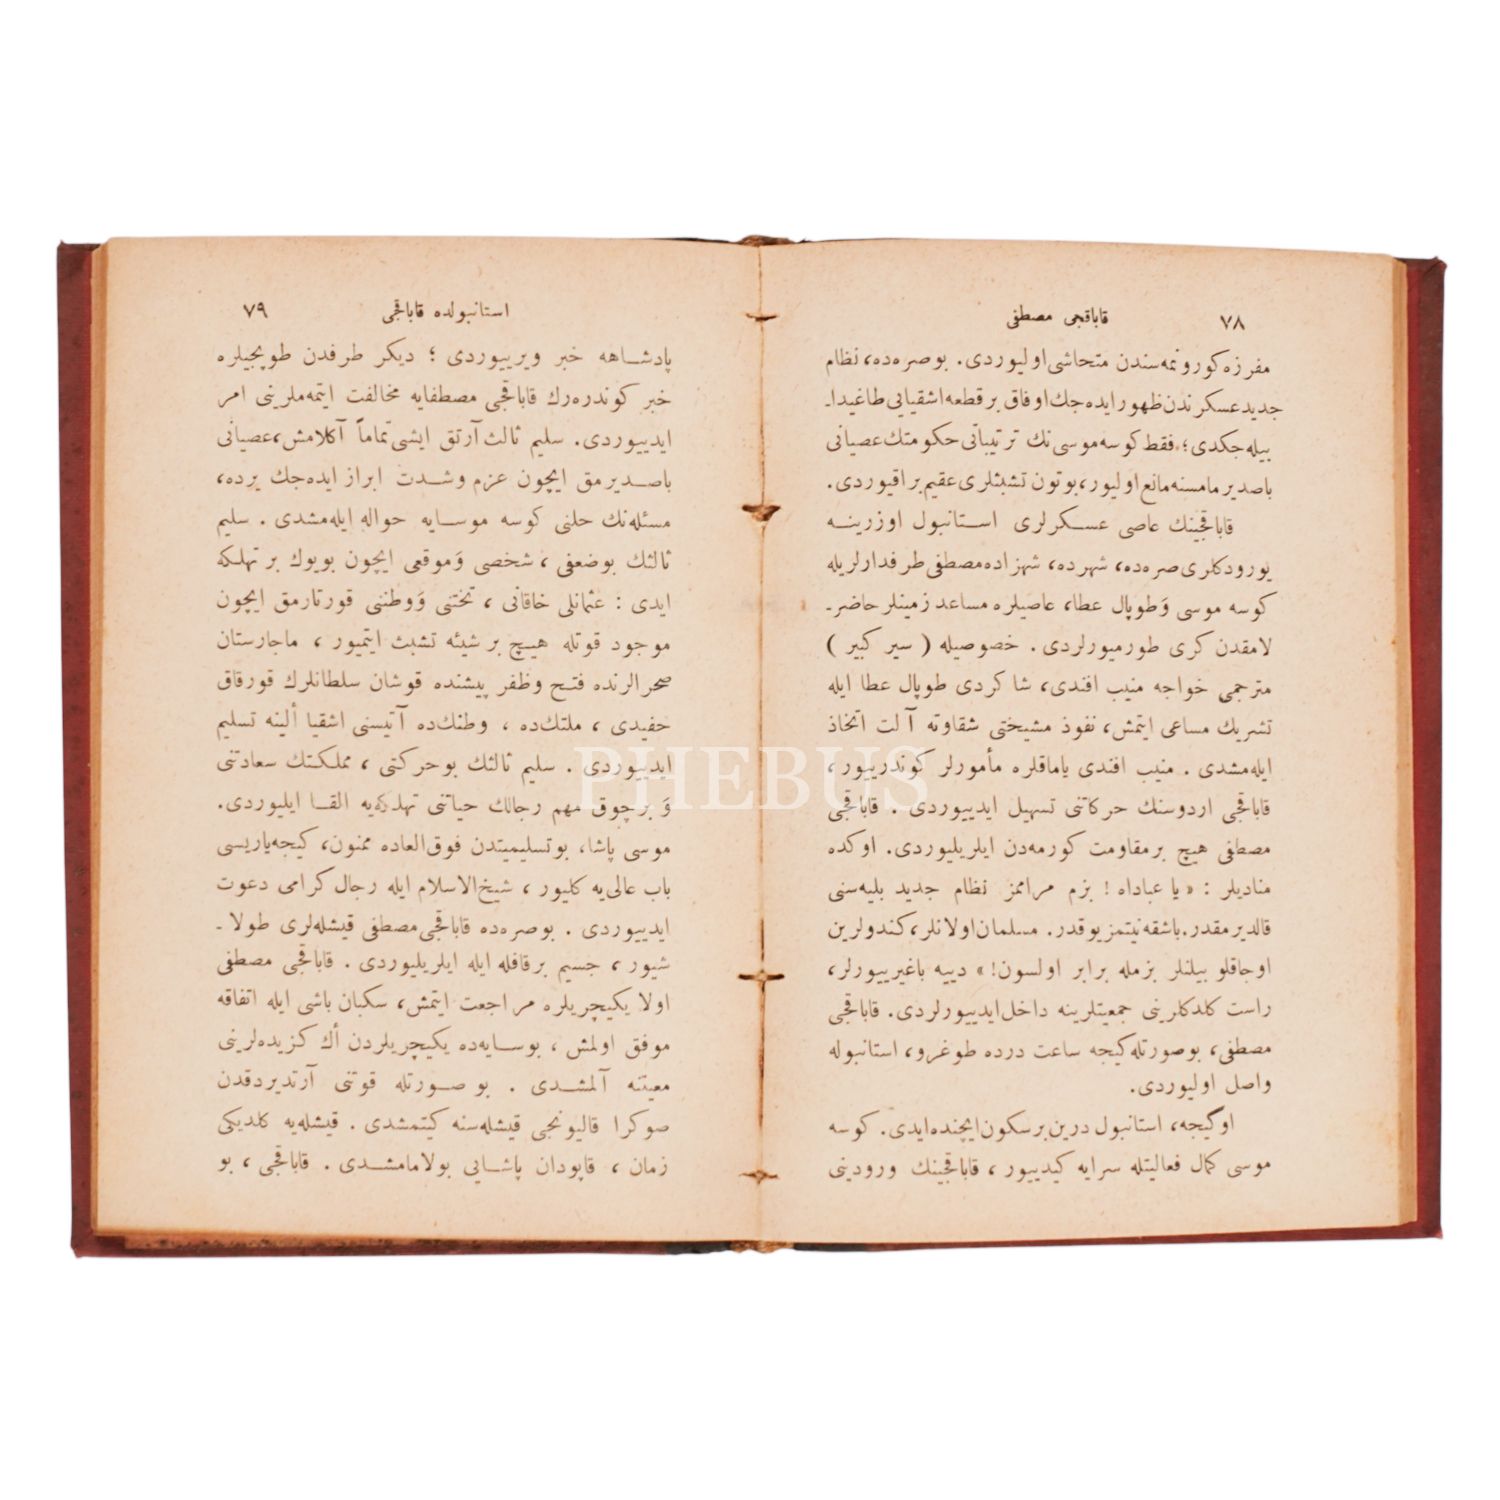 ٧٨ قاباقجی مصطفی
مفرزه كورونمه‌سندن متحاشی اولیوردی. بوصره‌ده، نظام
جدید عسكرندن ظهور ایده‌جك اوفاق بر قطعه اشقیایی طاغیدا-
بیله‌جكدی؛ فقط كوسه موسی نك ترتیباتی حكومتك عصیانی
باصدیرمامسنه مانع اولیور، بوتون تشبثلری عقیم براقیوردی.
قاباقجینك عاصی عسكرلری استانبول اوزرینه
یورودكلری صره‌ده، شهرده، شهزاده مصطفی طرفدارلریله
كوسه موسی وَطوپال عطا، عاصیلره مساعد زمینلر حاضر-
لامقدن كری طورمیورلردی. خصوصیله ( سیر كبیر )
مترجمی خواجه منیب افندی، شاكردی طوپال عطا ایله
تشریك مساعی ایتمش، نفوذ مشیختی شقاوته آلت اتخاذ
ایله‌مشدی. منیب افندی یاماقلره مأمورلر كوندرییور،
قاباقجی اردوسنك حركاتنی تسهیل ایدییوردی. قاباقجی
مصطفی هیچ بر مقاومت كورمه‌دن ایلریلیوردی. اوكده
منادیلر : « یا عباداه! بزم مراممز نظام جدید بلیه‌سنی
قالدیرمقدر. باشقه نیتمز یوقدر. مسلمان اولانلر، كندولرین
اوجاقلو بیلنلر بزمله برابر اولسون! » دییه باغیرییورلر،
راست كلدكلرینی جمعیتلرینه داخل ایدییورلردی. قاباقجی
مصطفی، بوصورتله كیجه ساعت درده طوغرو، استانبوله
واصل اولیوردی.
اوگیجه، استانبول درین بر سكون ایچنده ایدی. كوسه
موسی كمال فعالیتله سرایه كیدییور، قاباقجینك ورودینی
استانبولده قاباقجی ٧٩
پادشاهه خبر ویرییوردی؛ دیكر طرفدن طوپجیلره
خبر كوندره‌رك قاباقجی مصطفایه مخالفت ایتمه‌ملرینی امر
ایدییوردی. سلیم ثالث آرتق ایشی تماماً آكلامش، عصیانی
باصدیرمق ایچون عزم وشدت ابراز ایده‌جك یرده،
مسئله‌نك حلنی كوسه موسایه حواله ایله‌مشدی. سلیم
ثالثك بوضعفی، شخصی وَموقعی ایچون بویوك بر تهلكه
ایدی : عثمانلی خاقانی، تختنی وَوطننی قورتارمق ایچون
موجود قوتله هیچ بر شیئه تشبث ایتمیور، ماجارستان
صحرالرنده فتح وظفر پیشنده قوشان سلطانلرك قورقاق
حفیدی، ملتك‌ده، وطنك‌ده آتیسنی اشقیا ألینه تسلیم
ایدییوردی. سلیم ثالثك بوحركتی، مملكتك سعادتنی
وَ برچوق مهم رجالك حیاتنی تهلكه‌یه القا ایلیوردی.
موسی پاشا، بوتسلیمیتدن فوق‌العاده ممنون، كیجه یاریسی
باب عالی‌یه كلیور، شیخ‌الاسلام ایله رجال كرامی دعوت
ایدییوردی. بوصره‌ده قاباقجی مصطفی قیشله‌لری طولا-
شیور، جسیم بر قافله ایله ایلریلیوردی. قاباقجی مصطفی
اولا یكیچریلره مراجعت ایتمش، سكبان باشی ایله اتفاقه
موفق اولمش، بوسایه‌ده یكیچریلردن أك كزیده‌لرینی
معیتنه آلمشدی. بو صورتله قوتنی آرتدیردقدن
صوكرا قالیونجی قیشله‌سنه كیتمشدی. قیشله‌یه كلدیكی
زمان، قاپودان پاشایی بولامامشدی. قاباقجی، بو
PHEBUS